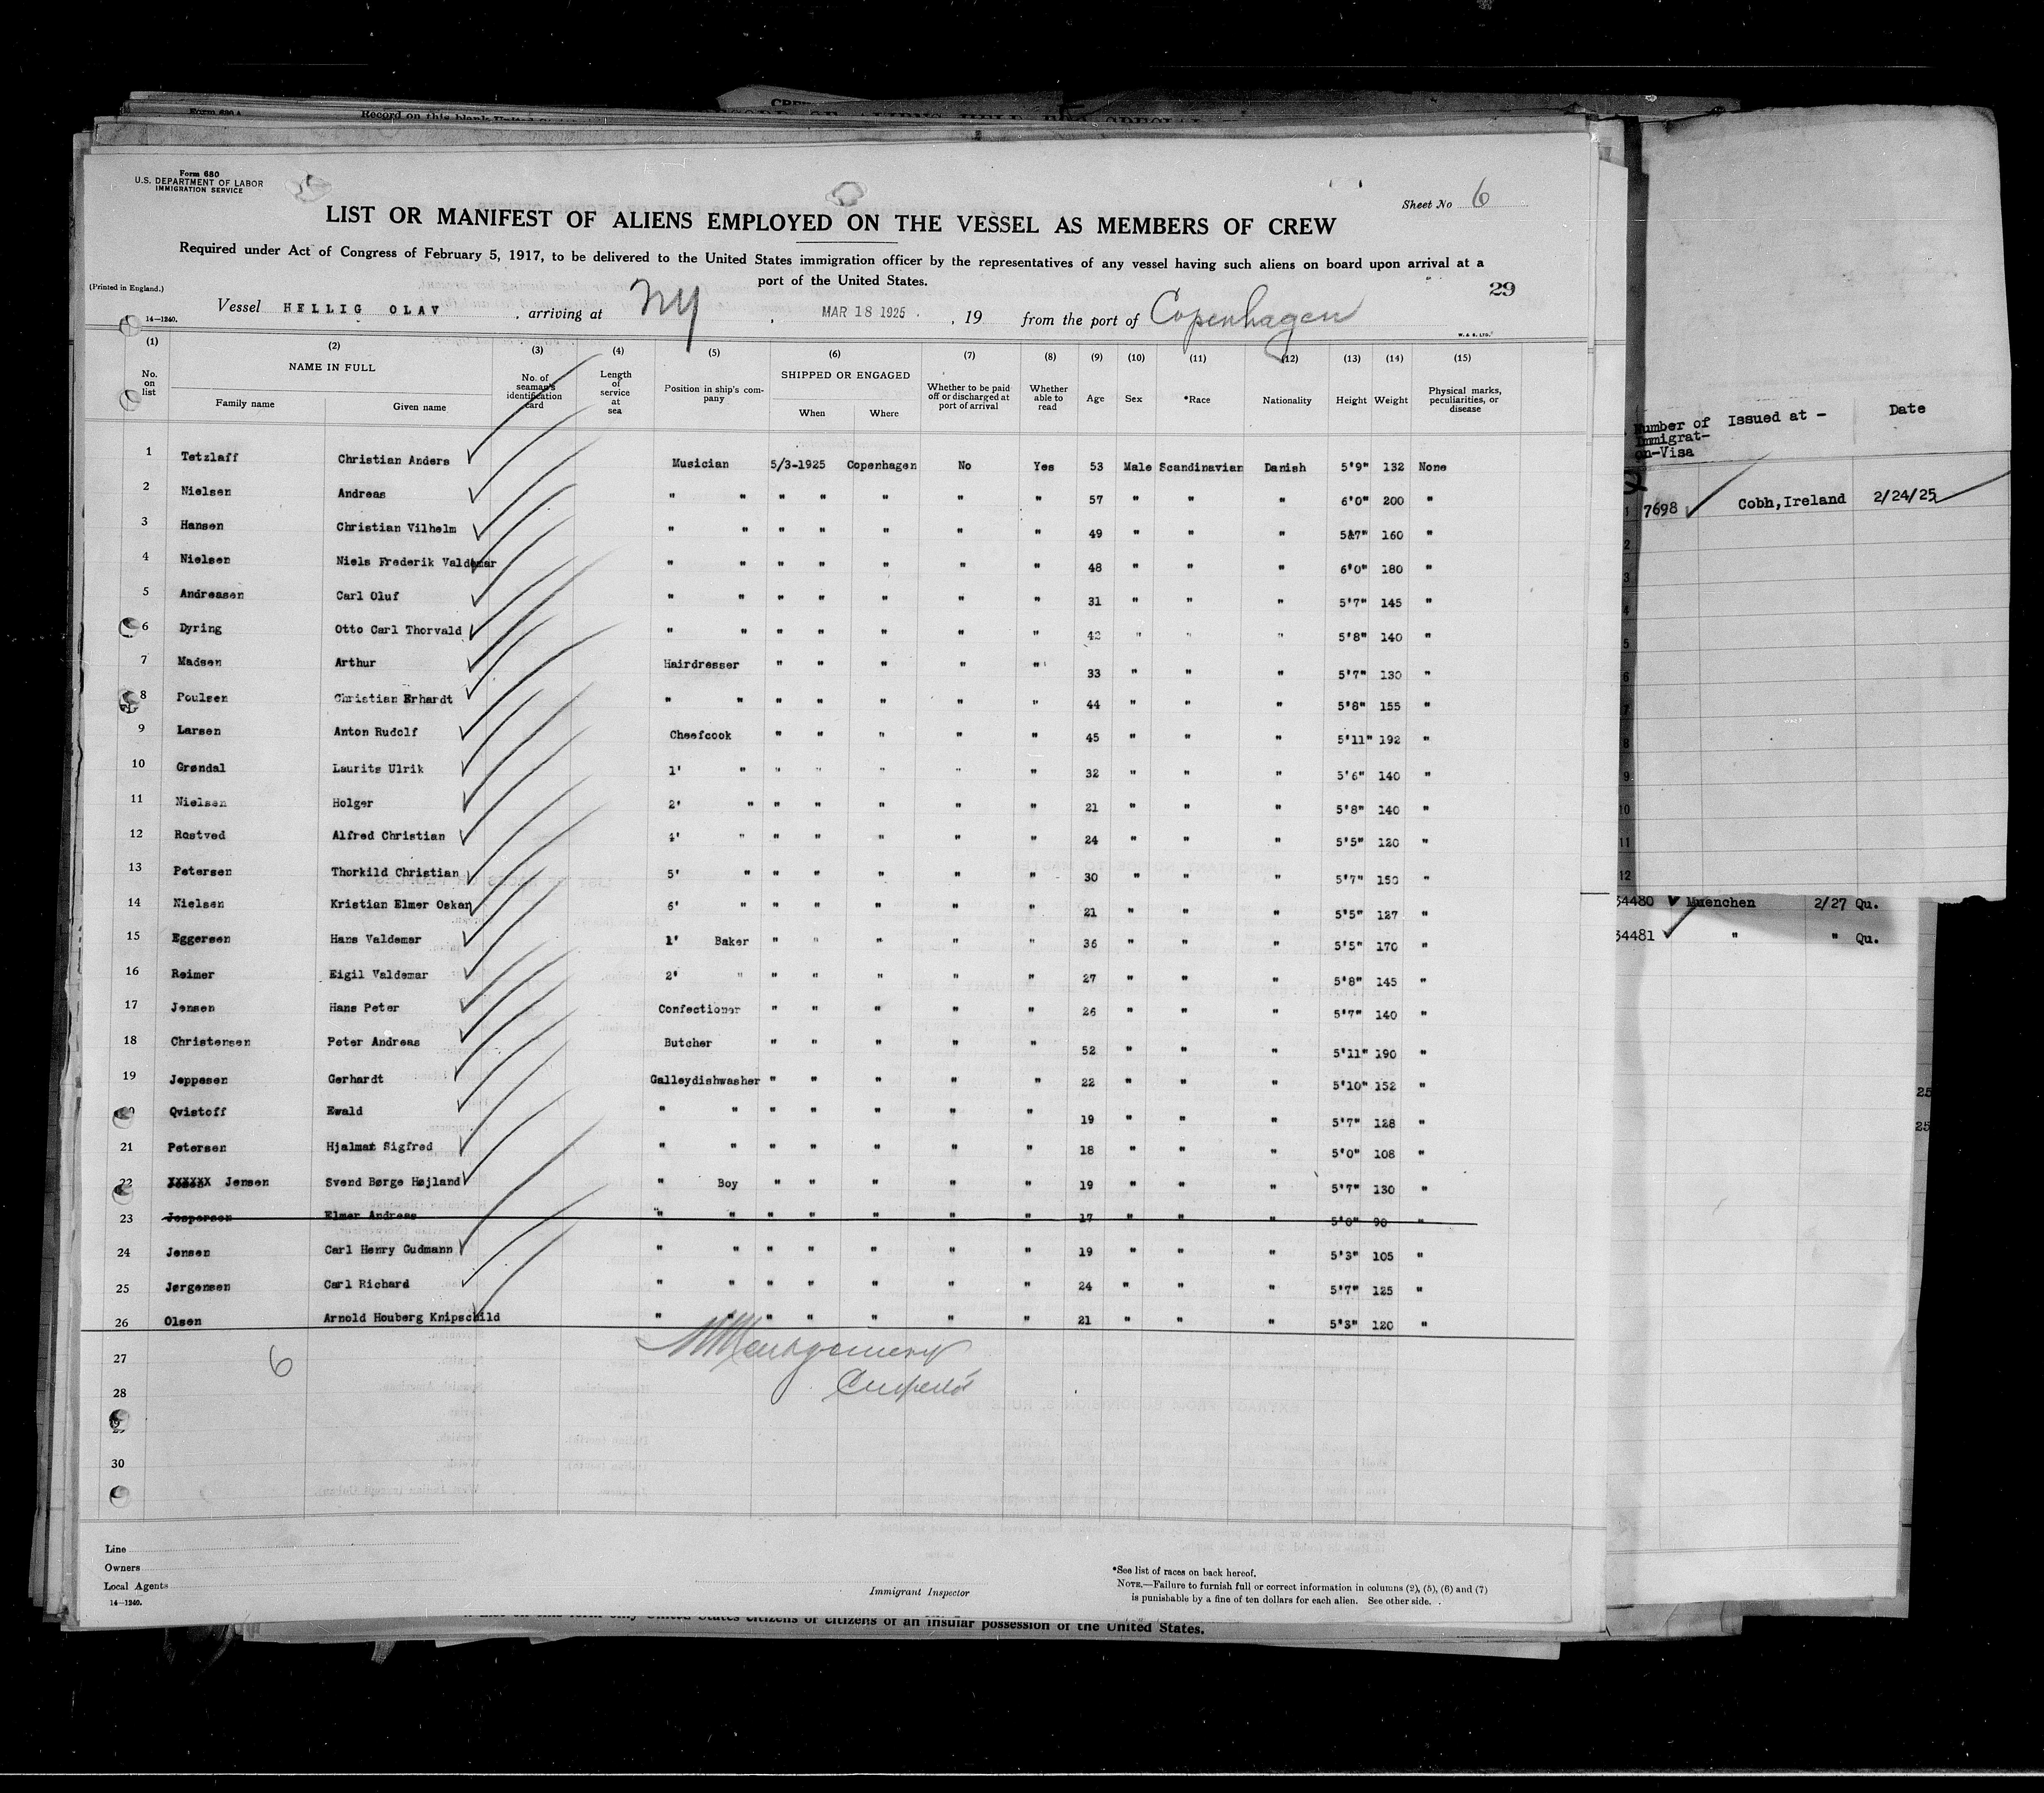 Form 680
U.S. DEPARTMENT OF LABOR
IMMIGRATION SERVICE
Sheet No 6
LIST OR MANIFEST OF ALIENS EMPLOYED ON THE VESSEL AS MEMBERS OF CREW
Required under Act of Congress of February 5, 1917, to be delivered to the United States immigration officer by the representatives of any vessel having such aliens on board upon arrival at a
port of the United States.
(Printed in England.)
29
Vessel HELLIG OLAV, arriving at NY, MAR 18 1925, 19 from the port of Copenhagen
14—1240.
W. & S. LTD.
(1) (2) (3) (4) (5) (6) (7) (8) (9) (10) (11) (12) (13) (14) (15)
No. on list NAME IN FULL Family name Given name No. of seaman's identification card Length of service at sea Position in ship's company SHIPPED OR ENGAGED When Where Whether to be paid off or discharged at port of arrival Whether able to read Age Sex *Race Nationality Height Weight Physical marks, peculiarities, or disease
1 Tetzlaff Christian Anders Musician 5/3-1925 Copenhagen No Yes 53 Male Scandinavian Danish 5'9" 132 None
2 Nielsen Andreas " " " " " " " 57 " " " 6'0" 200 "
3 Hansen Christian Vilhelm " " " " " " " 49 " " " 5&7" 160 "
4 Nielsen Niels Frederik Valdemar " " " " " " " 48 " " " 6'0" 180 "
5 Andreasen Carl Oluf " " " " " " " 31 " " " 5'7" 145 "
6 Dyring Otto Carl Thorvald " " " " " " " 42 " " " 5'8" 140 "
7 Madsen Arthur Hairdresser " " " " " 33 " " " 5'7" 130 "
8 Poulsen Christian Erhardt " " " " " " " 44 " " " 5'8" 155 "
9 Larsen Anton Rudolf Cheefcook " " " " " 45 " " " 5'11" 192 "
10 Grøndal Laurits Ulrik 1' " " " " " " 32 " " " 5'6" 140 "
11 Nielsen Holger 2' " " " " " " 21 " " " 5'8" 140 "
12 Rostved Alfred Christian 4' " " " " " " 24 " " " 5'5" 120 "
13 Petersen Thorkild Christian 5' " " " " " " 30 " " " 5'7" 150 "
14 Nielsen Kristian Elmer Oskan 6' " " " " " " 21 " " " 5'5" 127 "
15 Eggersen Hans Valdemar 1' Baker " " " " " 36 " " " 5'5" 170 "
16 Reimer Eigil Valdemar 2' " " " " " " 27 " " " 5'8" 145 "
17 Jensen Hans Peter Confectioner " " " " " 26 " " " 5'7" 140 "
18 Christensen Peter Andreas Butcher " " " " " 52 " " " 5'11" 190 "
19 Jeppesen Gerhardt Galleydishwasher " " " " " 22 " " " 5'10" 152 "
Qvistoff Ewald " " " " " " " 19 " " " 5'7" 128 "
21 Petersen Hjalmar Sigfred " " " " " " " 18 " " " 5'0" 108 "
22 Jensen Svend Børge Højland " Boy " " " " " 19 " " " 5'7" 130 "
23 Jespersen Elmer Andreas " " " " " " " 17 " " " 5'0" 90 "
24 Jensen Carl Henry Gudmann " " " " " " " 19 " " " 5'3" 105 "
25 Jørgensen Carl Richard " " " " " " " 24 " " " 5'7" 125 "
26 Olsen Arnold Houberg Knipschild " " " " " " " 21 " " " 5'3" 120 "
27 6
28
30
Line
Owners
Local Agents
14—1240.
Immigrant Inspector
*See list of races on back hereof.
NOTE.—Failure to furnish full or correct information in columns (2), (5), (6) and (7)
is punishable by a fine of ten dollars for each alien. See other side.
only United States citizens or citizens of an insular possession of the United States.
Number of Immigrat-on-Visa Issued at - Date
1 7698 Cobh, Ireland 2/24/25
2
3
4
5
6
7
8
9
10
11
12
34480 Muenchen 2/27 Qu.
34481 " " Qu.
25
25